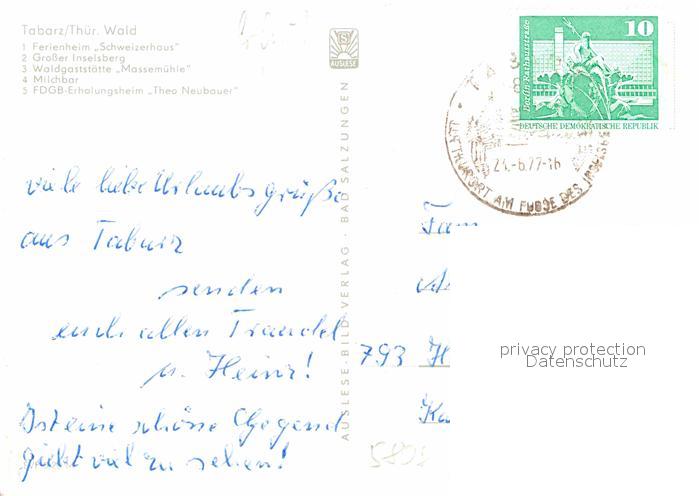 Tabarz/Thür. Wald
1 Ferienheim „Schweizerhaus"
2 Großer Inselsberg
3 Waldgaststätte „Massemühle"
4 Milchbar
5 FDGB-Erholungsheim „Theo Neubauer"
AUSLESE
AUSLESE-BILD-VERLAG · BAD SALZUNGEN
10
Berlin-Rathausstraße
DEUTSCHE DEMOKRATISCHE REPUBLIK
-6.77-16
LUFTKURORT AM FUSSE DES
viele liebe Urlaubsgrüße
aus Tabarz
senden
euch allen Traudel
u. Heinz!
Ist eine schöne Gegend
giebt viel zu sehen!
Fam
793 H
Ka
privacy protection
Datenschutz